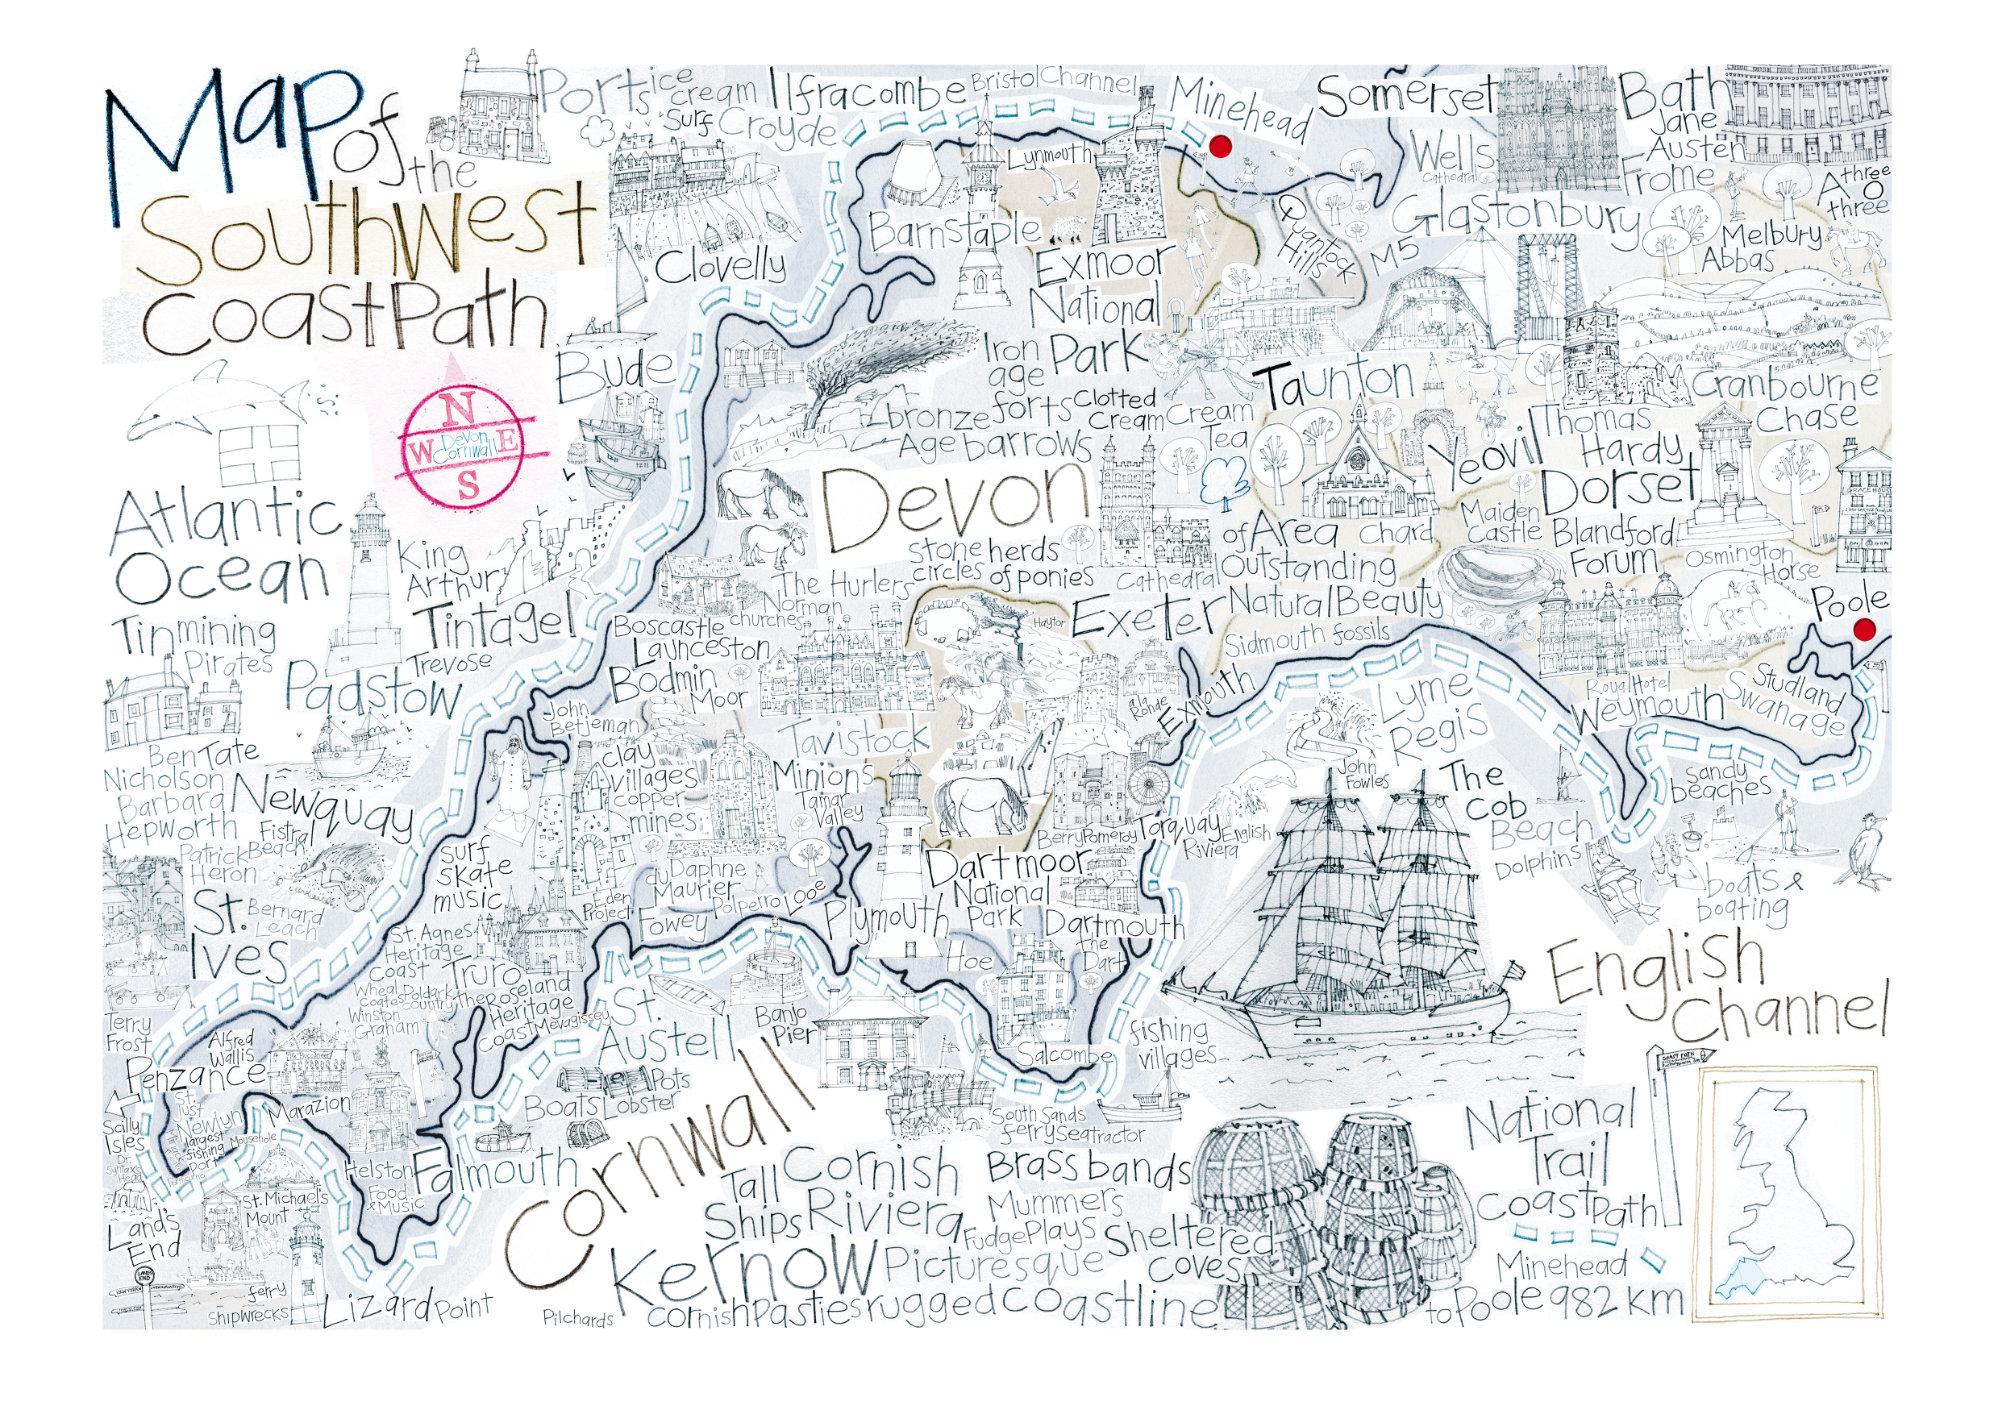 Map of the
SouthWest
CoastPath
Ports
ice cream
Surf
Croyde
Ilfracombe
Bristol Channel
Minehead
Somerset
Bath
Jane
Austen
Wells
Cathedral
Frome
A three
O
three
Lynmouth
Clovelly
Barnstaple
Exmoor
National
Park
Quantock
Hills
M5
Glastonbury
Melbury
Abbas
Bude
Iron
age
forts
bronze
Age barrows
Clotted
Cream
Cream
Tea
Taunton
Cranbourne
Chase
Thomas
Hardy
Yeovil
Dorset
N
W Devon E
Cornwall
S
Atlantic
Ocean
King
Arthur
Tintagel
Devon
stone
circles
herds
of ponies
Cathedral
Area
of
Outstanding
Natural Beauty
Chard
Maiden
Castle
Blandford
Forum
Osmington
Horse
Poole
Tin mining
Pirates
Padstow
Trevose
The Hurlers
Norman
churches
Boscastle
Launceston
Bodmin
Moor
Haytor
Exeter
Sidmouth fossils
Exmouth
a la
Ronde
Lyme
Regis
Royal Hotel
Weymouth
Studland
Swanage
John
Betjeman
Tavistock
Ben
Nicholson
Tate
Barbara
Hepworth
Newquay
Fistral
Beach
Patrick
Heron
clay
villages
copper
mines
Minions
Tamar
Valley
John
Fowles
The
Cob
Beach
Dolphins
sandy
beaches
Berry Pomeroy
Torquay
English
Riviera
St.
Ives
Bernard
Leach
surf
skate
music
Eden
Project
Daphne
du
Maurier
Fowey
Polperro
Looe
Plymouth
Hoe
Dartmoor
National
Park
Dartmouth
the
Dart
boats &
boating
St. Agnes
Heritage
Coast
Truro
Wheal
Coates
Poldark
Country
Winston
Graham
The Roseland
Heritage
Coast
Mevagissey
St.
Austell
Banjo
Pier
English
Channel
Terry
Frost
Alfred
Wallis
Penzance
Salcombe
fishing
villages
Scilly
Isles
St.
Just
Newlyn
largest
fishing
port
Mousehole
Marazion
Boats
Lobster
Pots
South Sands
ferry sea tractor
National
Trail
CoastPath
Helston
Falmouth
Food
& Music
St. Michaels
Mount
Land's
End
Cornwall
Tall
Ships
Cornish
Riviera
Brass bands
Mummers
Fudge Plays
Sheltered
coves
Kernow
Picturesque
Minehead
to Poole 982 km
ferry
shipwrecks
Lizard Point
Pilchards
cornish Pasties rugged coastline
LANDS
END
COAST PATH